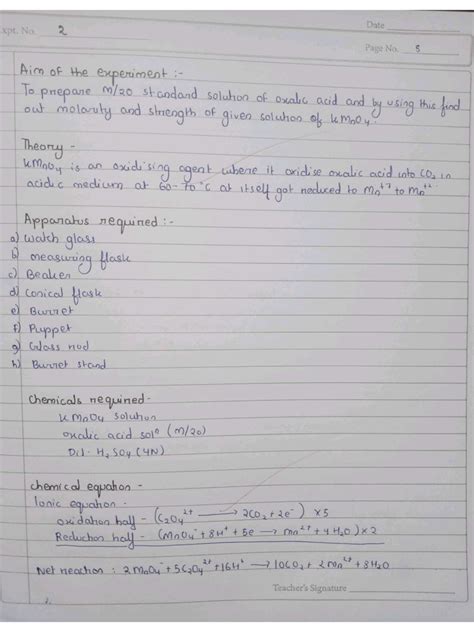 Date
xpt. No. 2
Page No. 3
Aim of the experiment :-
To prepare M/20 standard solution of oxalic acid and by using this find
out molarity and strength of given solution of KMnO4.
Theory -
KMnO4 is an oxidising agent where it oxidise oxalic acid into CO2 in
acidic medium at 60-70°C at itself got reduced to Mn+7 to Mn+2
Apparatus required :-
a) Watch glass
b) measuring flask
c) Beaker
d) Conical flask
e) Burret
f) Puppet
g) Glass rod
h) Burret stand
Chemicals required -
KMnO4 solution
oxalic acid solⁿ (M/20)
Dil. H2SO4 (4N)
chemical equation -
Ionic equation -
oxidation half - (C2O4²⁺ → 2CO2 + 2e⁻) ×5
Reduction half - (MnO4⁻ + 8H⁺ + 5e → Mn²⁺ + 4H2O) ×2
Net reaction : 2MnO4⁻ + 5C2O4²⁺ + 16H⁺ → 10CO2 + 2Mn²⁺ + 8H2O
Teacher's Signature